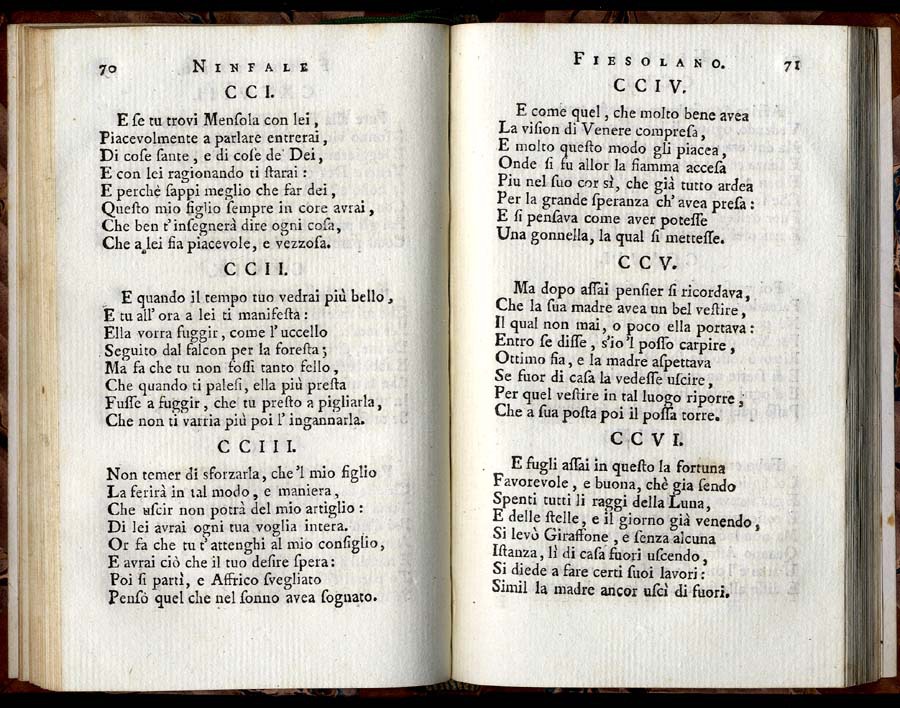 70 NINFALE
CCI.
E ſe tu trovi Menſola con lei,
Piacevolmente a parlare entrerai,
Di coſe ſante, e di coſe de' Dei,
E con lei ragionando ti ſtarai:
E perchè ſappi meglio che far dei,
Queſto mio figlio ſempre in core avrai,
Che ben t'inſegnerà dire ogni coſa,
Che a lei fia piacevole, e vezzoſa.
CCII.
E quando il tempo tuo vedrai più bello,
E tu all' ora a lei ti manifeſta:
Ella vorra fuggir, come l'uccello
Seguito dal falcon per la foreſta;
Ma fa che tu non foſſi tanto fello,
Che quando ti paleſi, ella più preſta
Fuſſe a fuggir, che tu preſto a pigliarla,
Che non ti varria più poi l'ingannarla.
CCIII.
Non temer di sforzarla, che 'l mio figlio
La ferirà in tal modo, e maniera,
Che uſcir non potrà del mio artiglio:
Di lei avrai ogni tua voglia intera.
Or fa che tu t'attenghi al mio conſiglio,
E avrai ciò che il tuo deſire ſpera:
Poi ſi partì, e Affrico ſvegliato
Penſò quel che nel ſonno avea ſognato.
FIESOLANO. 71
CCIV.
E come quel, che molto bene avea
La viſion di Venere compreſa,
E molto queſto modo gli piacea,
Onde ſi fu allor la fiamma acceſa
Piu nel ſuo cor sì, che già tutto ardea
Per la grande ſperanza ch' avea preſa:
E ſi penſava come aver poteſſe
Una gonnella, la qual ſi metteſſe.
CCV.
Ma dopo aſſai penſier ſi ricordava,
Che la ſua madre avea un bel veſtire,
Il qual non mai, o poco ella portava:
Entro ſe diſſe, s'io 'l poſſo carpire,
Ottimo fia, e la madre aſpettava
Se fuor di caſa la vedeſſe uſcire,
Per quel veſtire in tal luogo riporre,
Che a ſua poſta poi il poſſa torre.
CCVI.
E fugli aſſai in queſto la fortuna
Favorevole, e buona, chè gia ſendo
Spenti tutti li raggi della Luna,
E delle ſtelle, e il giorno già venendo,
Si levò Giraffone, e ſenza alcuna
Iſtanza, lì di caſa fuori uſcendo,
Si diede a fare certi ſuoi lavori:
Simil la madre ancor uſcì di fuori.